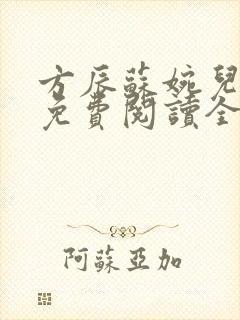 方辰蘇婉兒
免費閱讀全
阿蘇亞加